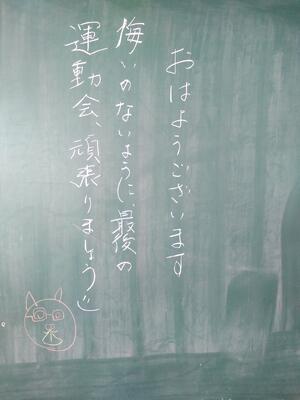 おはようございます
悔いのないように、最後の
運動会、頑張りましょう